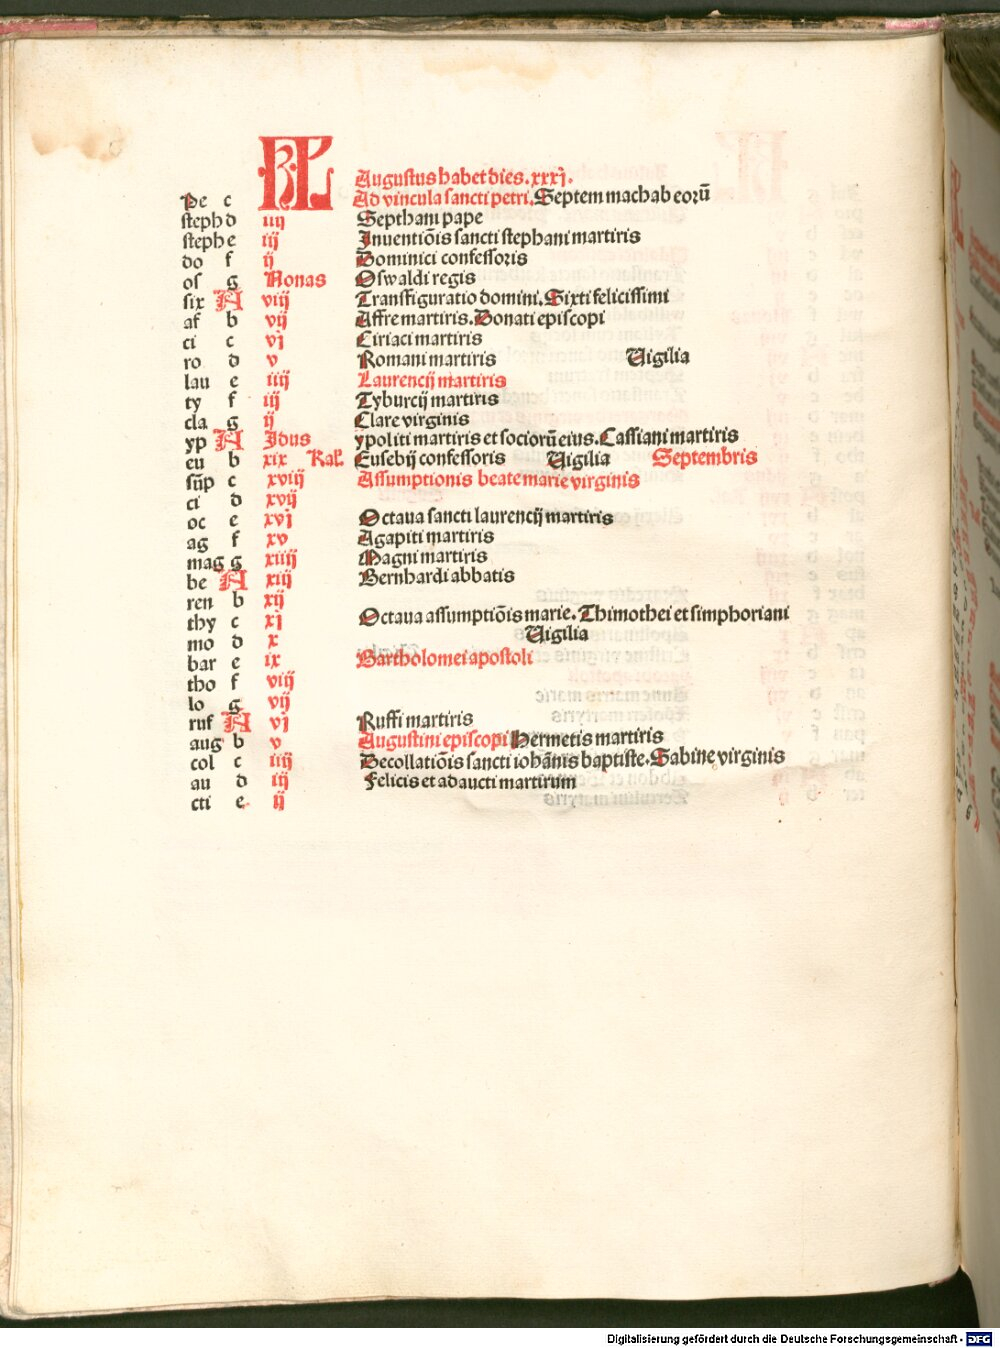 KL Augustus habet dies. xxxj.
Pe c Ad vincula sancti petri. Septem machabeorū
steph d iiij Septhani pape
steph e iij Inuentiōis sancti stephani martiris
do f ij Dominici confessoris
os g Nonas Oswaldi regis
six A viij Transfiguratio domini. Sixti felicissimi
af b vij Affre martiris. Donati episcopi
ci c vj Ciriaci martiris
ro d v Romani martiris Uigilia
lau e iiij Laurencij martiris
ty f iij Tyburcij martiris
cla g ij Clare virginis
yp A Idus ypoliti martiris et sociorū eius. Cassiani martiris
eu b xix Kal. Eusebij confessoris Uigilia Septembris
sūp c xviij Assumptionis beate marie virginis
ci d xvij
oc e xvj Octaua sancti laurencij martiris
ag f xv Agapiti martiris
mag g xiiij Magni martiris
be A xiij Bernhardi abbatis
ren b xij
thy c xj Octaua assumptiōis marie. Thimothei et simphoriani
mo d x Uigilia
bar e ix Bartholomei apostoli
tho f viij
lo g vij
ruf A vj Ruffi martiris
aug b v Augustini episcopi Hermetis martiris
col c iiij Decollatiōis sancti iohānis baptiste. Sabine virginis
au d iij Felicis et adaucti martirum
cti e ij
Digitalisierung gefördert durch die Deutsche Forschungsgemeinschaft - DFG